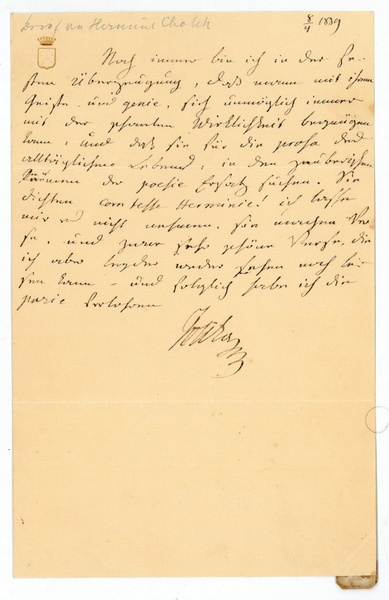 Brief an Hermine Chotek
8/4 1889
Noch immer bin ich in der fe-
sten Überzeugung, daß man mit ihrem
Geiste und genie, sich unmöglich immer
mit der Wirklichkeit begnügen
kann, und daß sie für die prosa des
alltäglichen Lebens, in den zauberischen
Räumen der poesie Ersatz suchen. Sie
dichten comtesse Herminie! ich lasse
mir es nicht nehmen. sie machen Ver-
se, und zwar sehr schöne Verse, die
ich aber leyder weder sehen noch le-
sen kann – und folglich habe ich die
parie verlohren